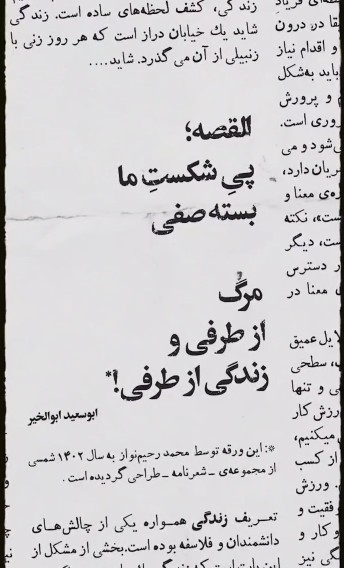 زندگی، کشف لحظه‌های ساده است. زندگی
شاید یك خیابان دراز است که هر روز زنی با
زنبیلی از آن می گذرد. شاید....
القصه؛
پیِ شکستِ ما
بسته صفی
مرگ
از طرفی و
زندگی از طرفی!*
ابوسعید ابوالخیر
*: این ورقه توسط محمد رحیم‌نواز به سال ۱۴۰۲ شمسی
از مجموعه‌ی _شعرنامه_ طراحی گردیده است.
تعریف زندگی همواره یکی از چالش‌های
دانشمندان و فلاسفه بوده است.بخشی از مشکل از
فریاد
درون
و اقدام نیاز
باید به‌شکل
و پرورش
روری است.
شود و می
ریان دارد،
معنا و
ست»، نکته
ست، دیگر
دسترس
معنا در
عمیق
سطحی
و تنها
ورزش کار
میکنیم،
از کسب
ورزش
وفقیت و
کار و
نیز